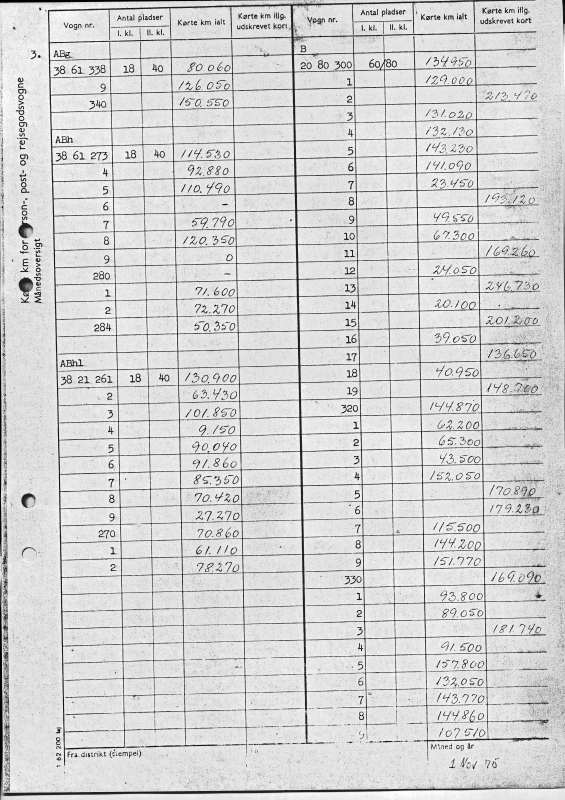 3.
Månedsoversigt
Vogn nr. Antal pladser Kørte km ialt Kørte km iflg. udskrevet kort
I. kl. II. kl.
ABg
38 61 338 18 40 80.060
9 126.050
340 150.550
ABh
38 61 273 18 40 114.530
4 92.880
5 110.490
6 –
7 59.790
8 120.350
9 0
280 –
1 71.600
2 72.270
284 50.350
ABhl
38 21 261 18 40 130.900
2 63.430
3 101.850
4 9.150
5 90.040
6 91.860
7 85.350
8 70.420
9 27.270
270 70.860
1 61.110
2 78.270
Fra distrikt (stempel)
Vogn nr. Antal pladser Kørte km ialt Kørte km iflg. udskrevet kort
I. kl. II. kl.
B
20 80 300 60/80 134950
1 129.000
2 213.470
3 131.020
4 132.130
5 143.230
6 141.090
7 23.450
8 193.120
9 49.550
10 67.300
11 169.260
12 24.050
13 246.730
14 20.100
15 201.200
16 39.050
17 136.650
18 40.950
19 148.760
320 144.870
1 62.200
2 65.300
3 43.500
4 152.050
5 170.890
6 179.230
7 115.500
8 144.200
9 151.770
330 169.090
1 93.800
2 89.050
3 181.740
4 91.500
5 157.800
6 132.050
7 143.770
8 144.860
9 107.510
Måned og år
1 Nov 75